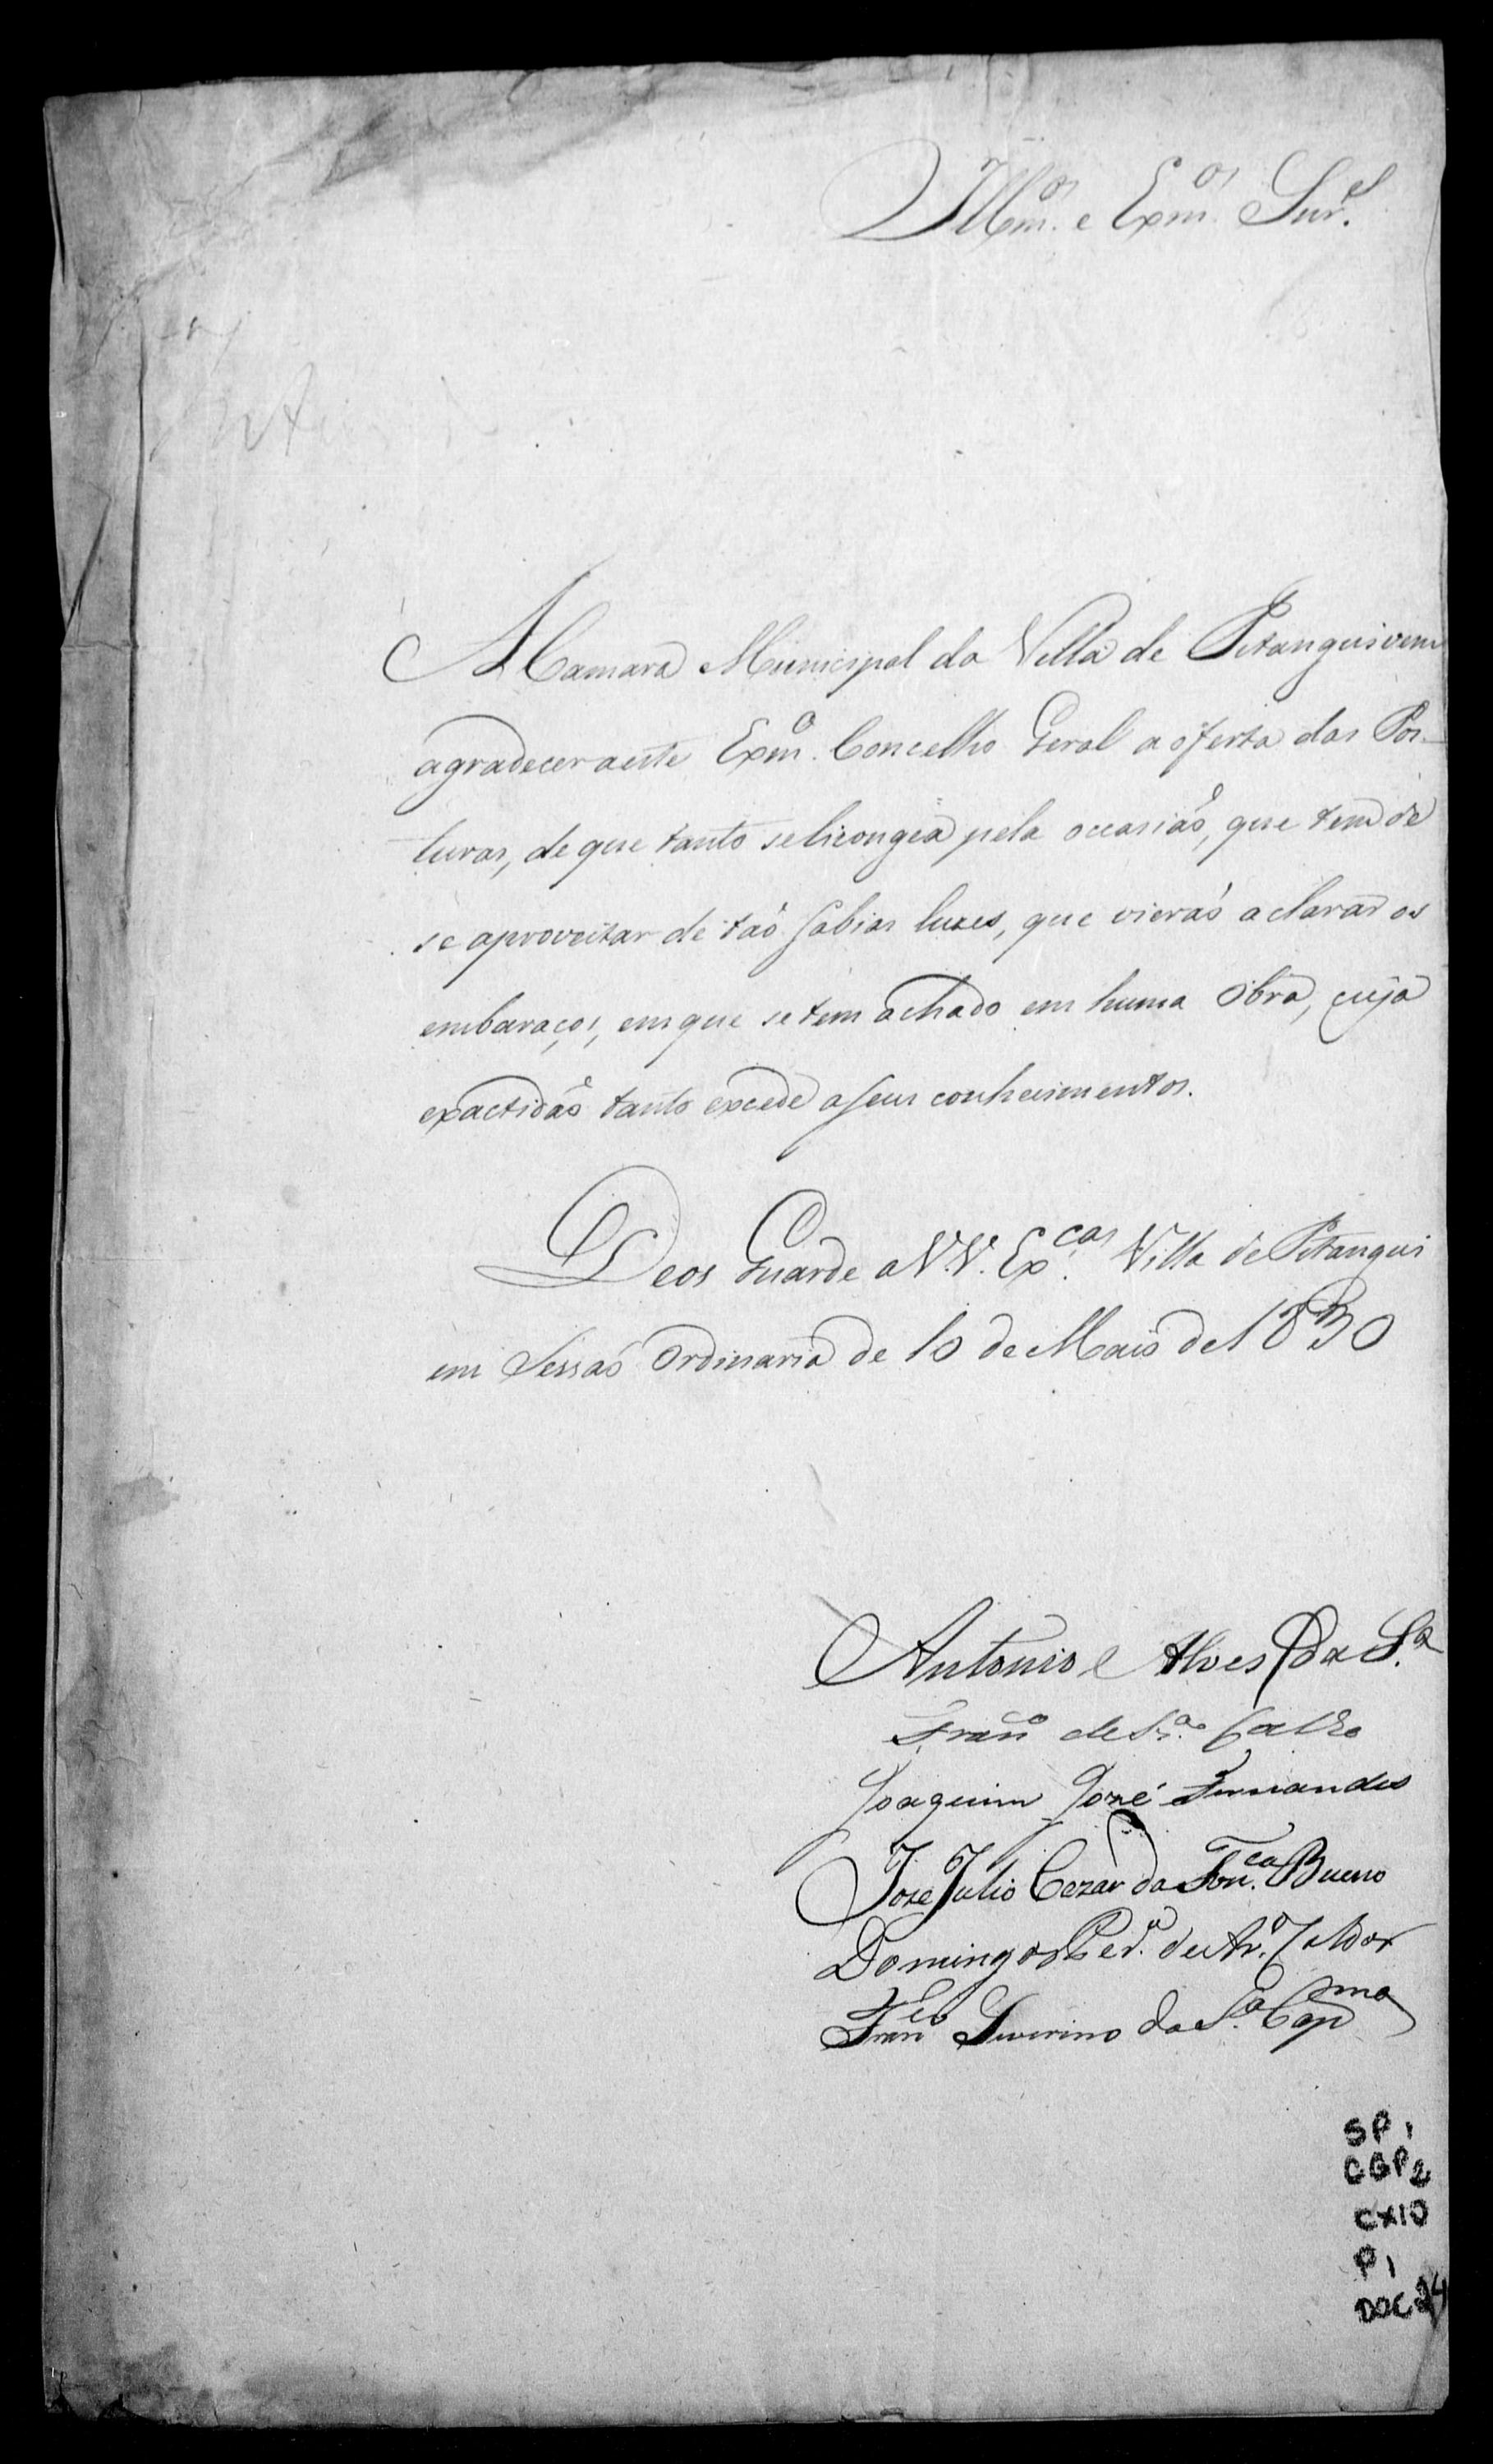 Illm.os e Exm.os Snr.es
A Camara Municipal da Villa de Pitangui vem
agradecer a este Exm.o Concelho Geral a oferta das Pos-
turas, de que tanto se licongea pela occasiaõ, que tem de
se aproveitar de taõ sabias luzes, que vieraõ aclarar os
embaraços, em que se tem achado em huma Obra, cuja
exactidaõ tanto excede a seus conhecimentos.
Deos Guarde a V.V. Ex.cas Villa de Pitangui
em Sessaõ Ordinaria de 10 de Maio de 1830
Antonio Alves da S.a
Fran.co de
Joaquim José Fernandes
Jose Julio Cezar da Fon.ca Bueno
Domingos Per.a de Ar.o Caldas
Fran.co Severino da S.a Cap
SP 1
CGP 2
CX10
P 1
DOC 24